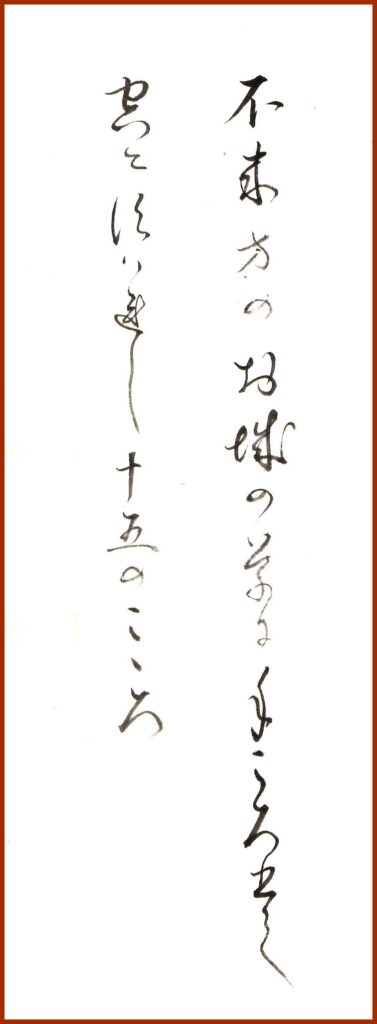 不来方のお城の草にねころひて
空にすはれし十五のこゝろ